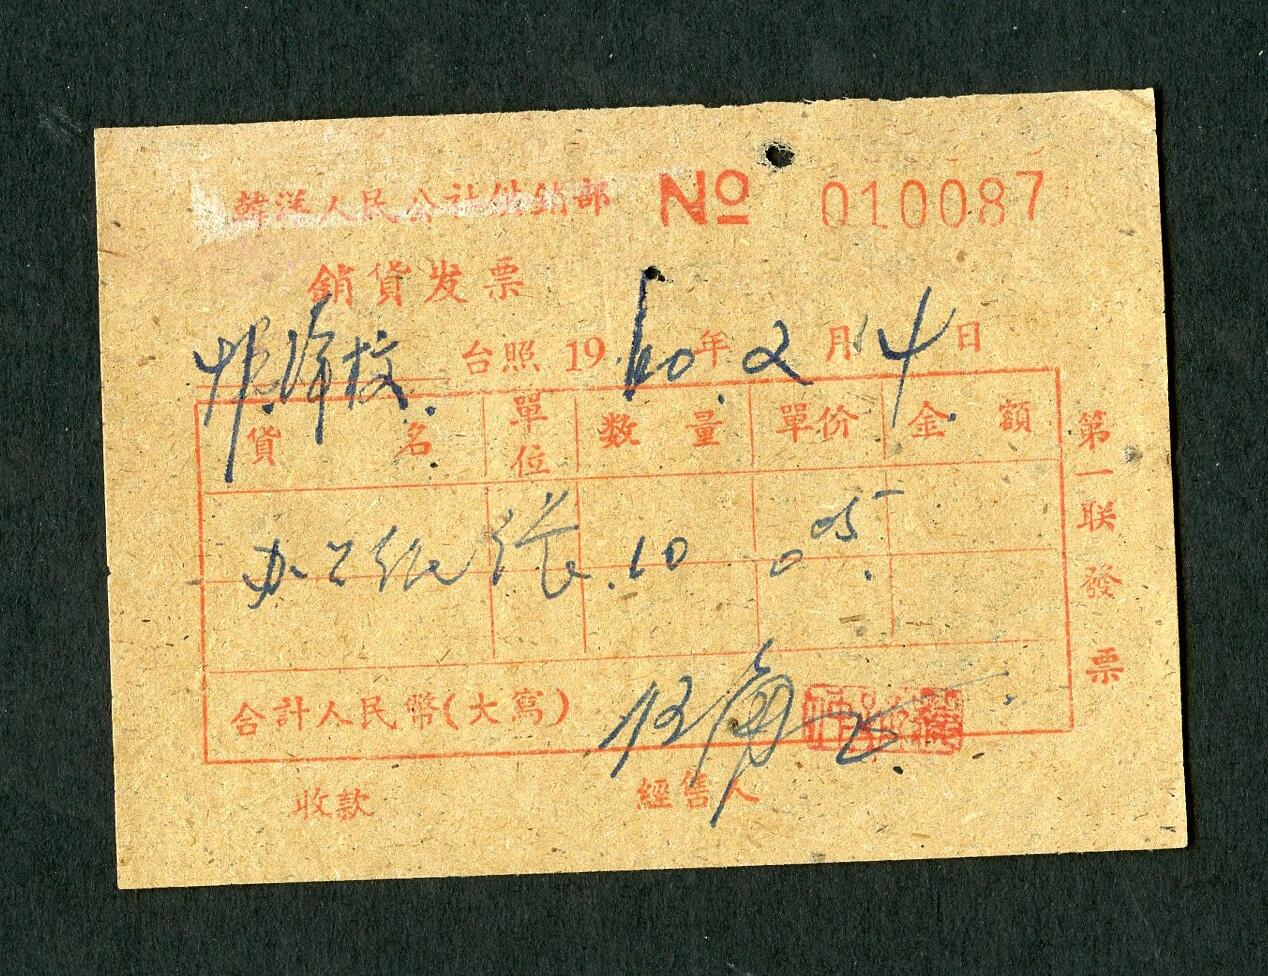 韓洋人民公社供銷部 No 010087
銷貨发票
台照 1960年2月14日
貨名 單位 数量 單价 金額
办公纸 张 10 0.05
合計人民幣(大寫) 伍角
收款 經售人
第一联發票